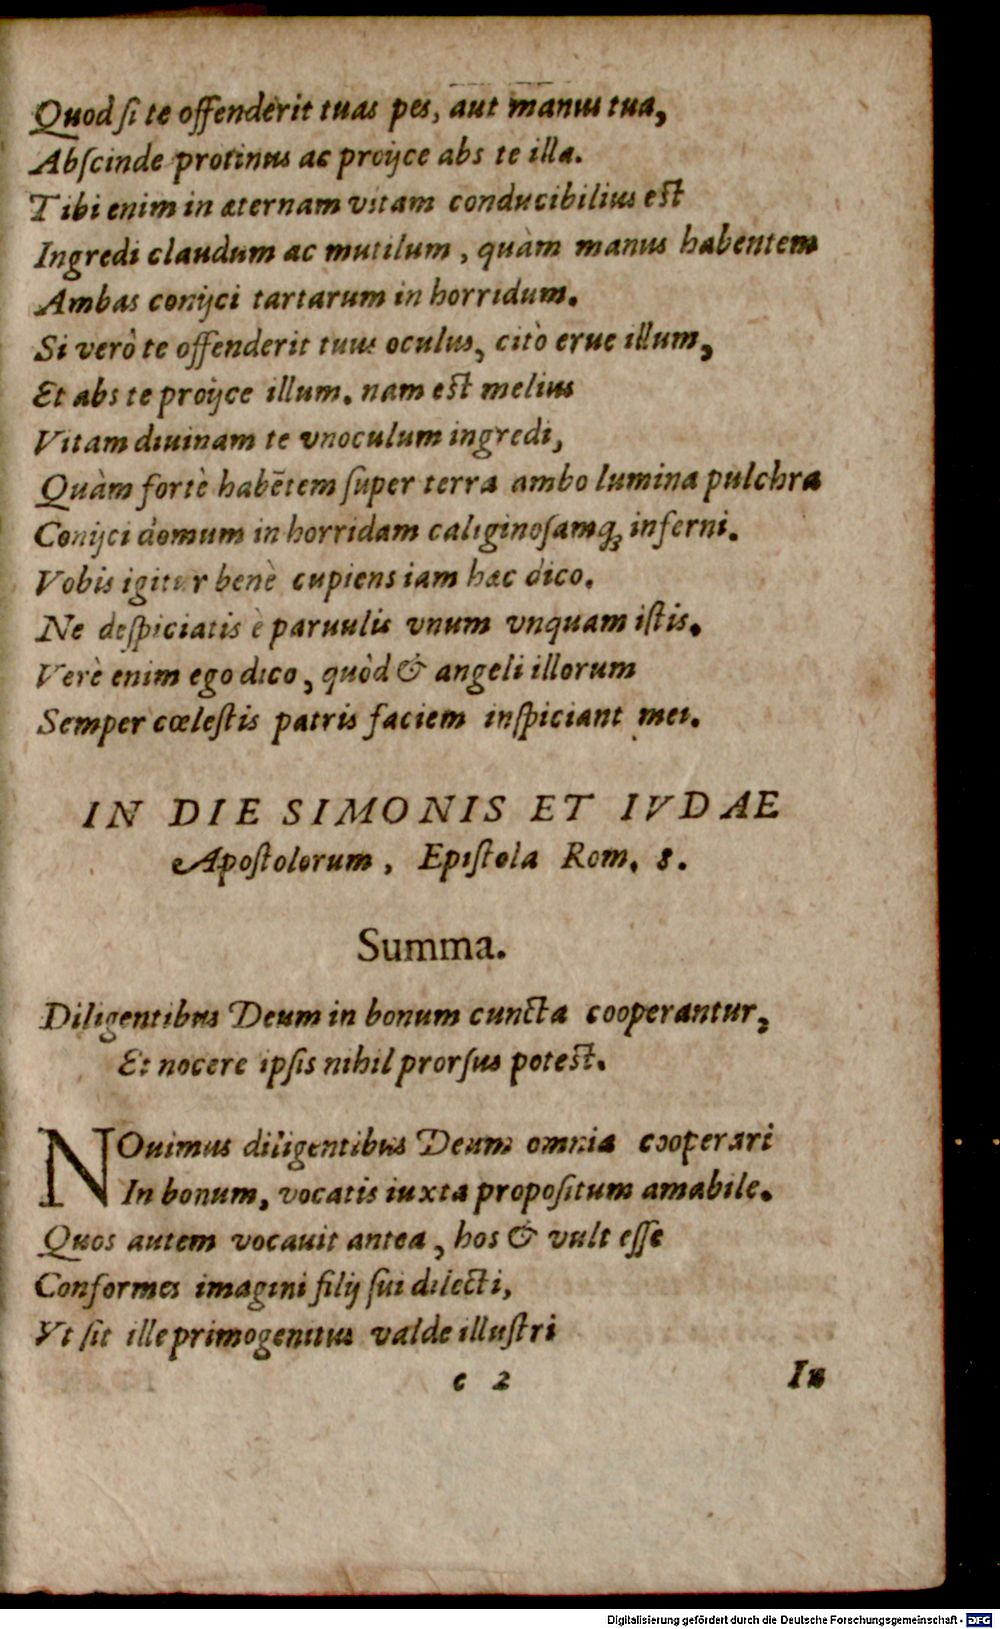 Quod ſi te offenderit tuas pes, aut manus tua,
Abſcinde protinus ac proijce abs te illa.
Tibi enim in æternam vitam conducibilius est
Ingredi claudum ac mutilum, quàm manus habentem
Ambas conijci tartarum in horridum.
Si verò te offenderit tuus oculus, citò erue illum,
Et abs te proijce illum. nam est melius
Vitam diuinam te vnoculum ingredi,
Quàm fortè habētem ſuper terra ambo lumina pulchra
Conijci domum in horridam caliginoſamq; inferni.
Vobis igitur benè cupiens iam hæc dico.
Ne deſpiciatis è paruulis vnum vnquam iſtis.
Verè enim ego dico, quòd & angeli illorum
Semper cœleſtis patris faciem inſpiciant mei.
IN DIE SIMONIS ET IVDAE
Apoſtolorum, Epiſtola Rom. 8.
Summa.
Diligentibus Deum in bonum cuncta cooperantur,
Et nocere ipſis nihil prorſus potest.
NOuimus diligentibus Deum omnia cooperari
In bonum, vocatis iuxta propoſitum amabile.
Quos autem vocauit antea, hos & vult eſſe
Conformes imagini filij ſui dilecti,
Vt ſit ille primogenitus valde illuſtri
c 2
In
Digitalisierung gefördert durch die Deutsche Forschungsgemeinschaft - DFG